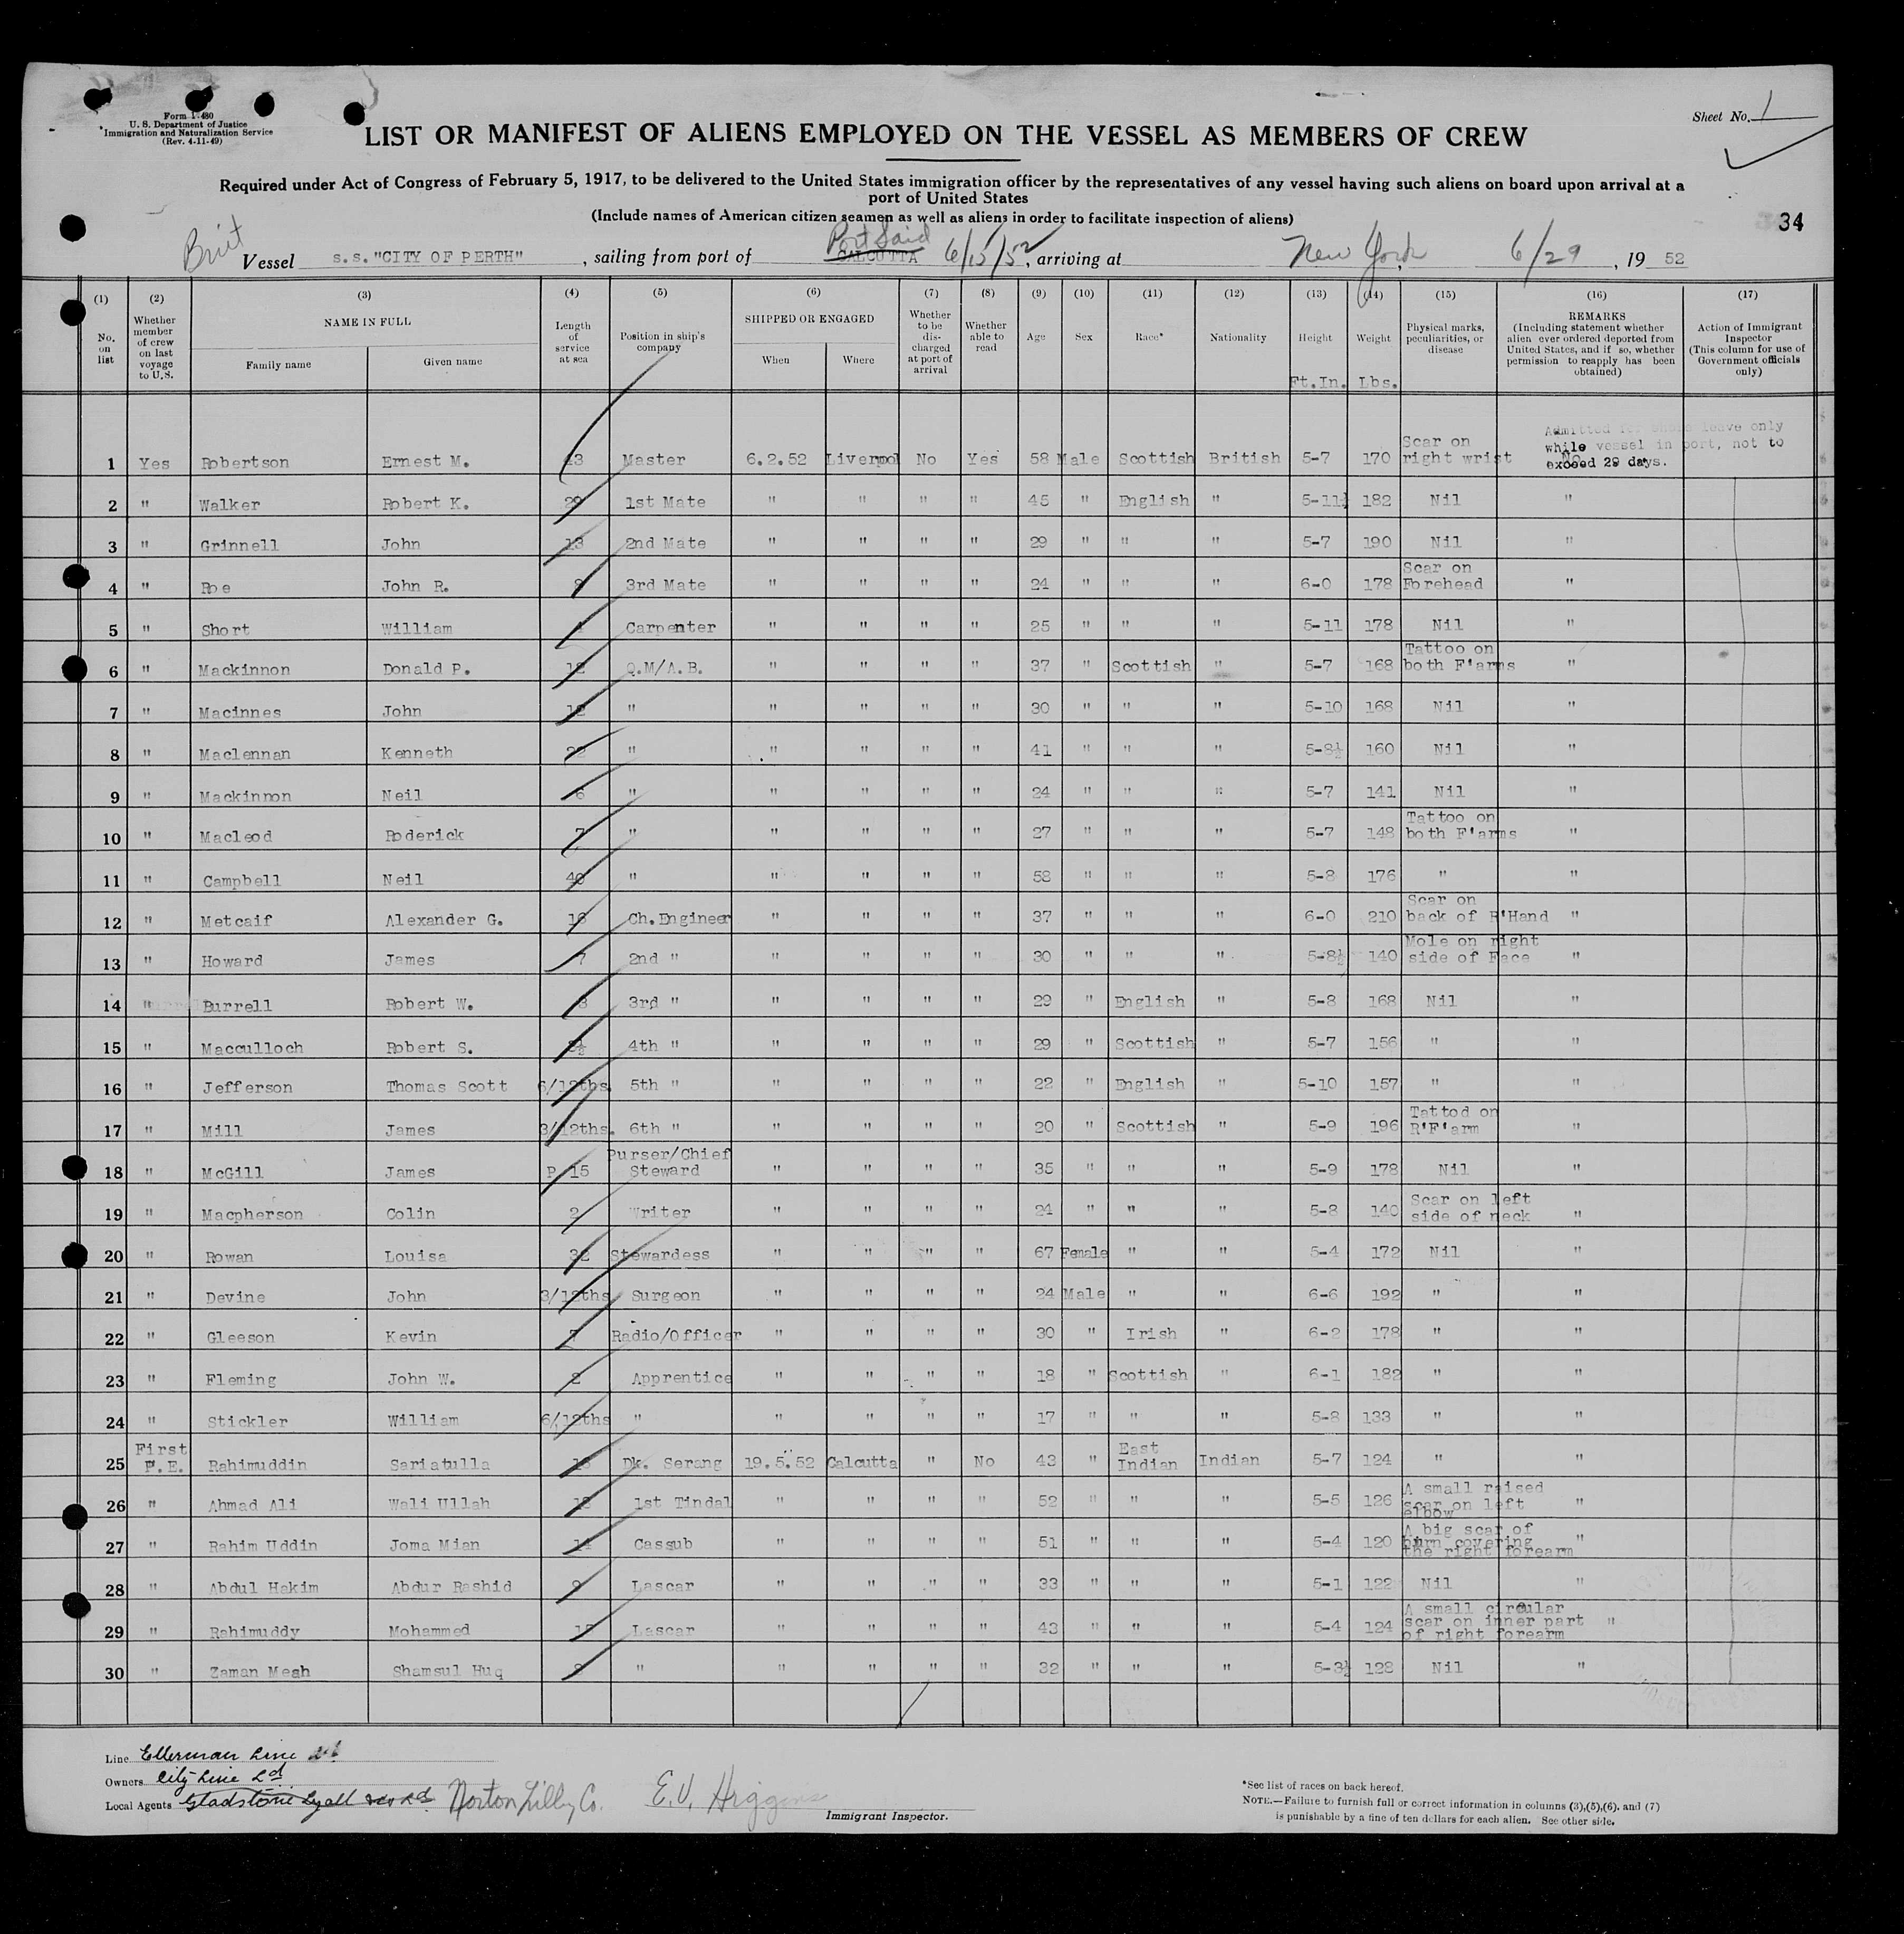 Form I-480
U. S. Department of Justice
Immigration and Naturalization Service
(Rev. 4-11-49)
Sheet No. 1
LIST OR MANIFEST OF ALIENS EMPLOYED ON THE VESSEL AS MEMBERS OF CREW
Required under Act of Congress of February 5, 1917, to be delivered to the United States immigration officer by the representatives of any vessel having such aliens on board upon arrival at a
port of United States
(Include names of American citizen seamen as well as aliens in order to facilitate inspection of aliens)
34
Brit Vessel s.s. "CITY OF PERTH", sailing from port of CALCUTTA Port Said 6/15/52, arriving at New York, 6/29, 19 52
(1) (2) (3) (4) (5) (6) (7) (8) (9) (10) (11) (12) (13) (14) (15) (16) (17)
No. on list
Whether member of crew on last voyage to U.S.
NAME IN FULL
Family name
Given name
Length of service at sea
Position in ship's company
SHIPPED OR ENGAGED
When
Where
Whether to be discharged at port of arrival
Whether able to read
Age
Sex
Race*
Nationality
Height
Ft.In.
Weight
Lbs.
Physical marks, peculiarities, or disease
REMARKS
(Including statement whether alien ever ordered deported from United States, and if so, whether permission to reapply has been obtained)
Action of Immigrant Inspector
(This column for use of Government officials only)
Admitted for shore leave only
while vessel in port, not to
exceed 29 days.
1 Yes Robertson Ernest M. 43 Master 6.2.52 Liverpool No Yes 58 Male Scottish British 5-7 170 Scar on right wrist No
2 " Walker Robert K. 29 1st Mate " " " " 45 " English " 5-11½ 182 Nil "
3 " Grinnell John 13 2nd Mate " " " " 29 " " " 5-7 190 Nil "
4 " Roe John R. 3rd Mate " " " " 24 " " " 6-0 178 Scar on Forehead "
5 " Short William Carpenter " " " " 25 " " " 5-11 178 Nil "
6 " Mackinnon Donald P. 12 Q.M/A.B. " " " " 37 " Scottish " 5-7 168 Tattoo on both F'arms "
7 " Macinnes John 12 " " " " " 30 " " " 5-10 168 Nil "
8 " Maclennan Kenneth 22 " " " " " 41 " " " 5-8½ 160 Nil "
9 " Mackinnon Neil 6 " " " " " 24 " " " 5-7 141 Nil "
10 " Macleod Roderick 7 " " " " " 27 " " " 5-7 148 Tattoo on both F'arms "
11 " Campbell Neil 40 " " " " " 58 " " " 5-8 176 " "
12 " Metcaif Alexander G. 16 Ch.Engineer " " " " 37 " " " 6-0 210 Scar on back of R'Hand "
13 " Howard James 7 2nd " " " " " 30 " " " 5-8½ 140 Mole on right side of Face "
14 " Burrell Robert W. 3rd " " " " " 29 " English " 5-8 168 Nil "
15 " Macculloch Robert S. 4th " " " " " 29 " Scottish " 5-7 156 " "
16 " Jefferson Thomas Scott 6/12ths 5th " " " " " 22 " English " 5-10 157 " "
17 " Mill James 3/12ths. 6th " " " " " 20 " Scottish " 5-9 196 Tattod on R'F'arm "
18 " McGill James 15 Purser/Chief Steward " " " " 35 " " " 5-9 178 Nil "
19 " Macpherson Colin 2 Writer " " " " 24 " " " 5-8 140 Scar on left side of neck "
20 " Rowan Louisa 32 Stewardess " " " " 67 Female " " 5-4 172 Nil "
21 " Devine John 3/12ths Surgeon " " " " 24 Male " " 6-6 192 " "
22 " Gleeson Kevin 7 Radio/Officer " " " " 30 " Irish " 6-2 178 " "
23 " Fleming John W. 2 Apprentice " " " " 18 " Scottish " 6-1 182 " "
24 " Stickler William 6/12ths " " " " " 17 " " " 5-8 133 " "
25 First P.E. Rahimuddin Sariatulla Dk. Serang 19.5.52 Calcutta " No 43 " East Indian Indian 5-7 124 " "
26 " Ahmad Ali Wali Ullah 1st Tindal " " " " 52 " " " 5-5 126 A small raised scar on left elbow "
27 " Rahim Uddin Joma Mian 14 Cassub " " " " 51 " " " 5-4 120 A big scar of burn covering the right forearm "
28 " Abdul Hakim Abdur Rashid Lascar " " " " 33 " " " 5-1 122 Nil "
29 " Rahimuddy Mohammed Lascar " " " " 43 " " " 5-4 124 A small circular scar on inner part of right forearm "
30 " Zaman Meah Shamsul Huq " " " " " 32 " " " 5-3½ 128 Nil "
Line Ellerman Line
Owners City Line Ld
Local Agents Gladstone Lyall & Co Ld Norton Lilly Co. E.V. Higgins
Immigrant Inspector.
*See list of races on back hereof.
NOTE.—Failure to furnish full or correct information in columns (3),(5),(6), and (7)
is punishable by a fine of ten dollars for each alien. See other side.